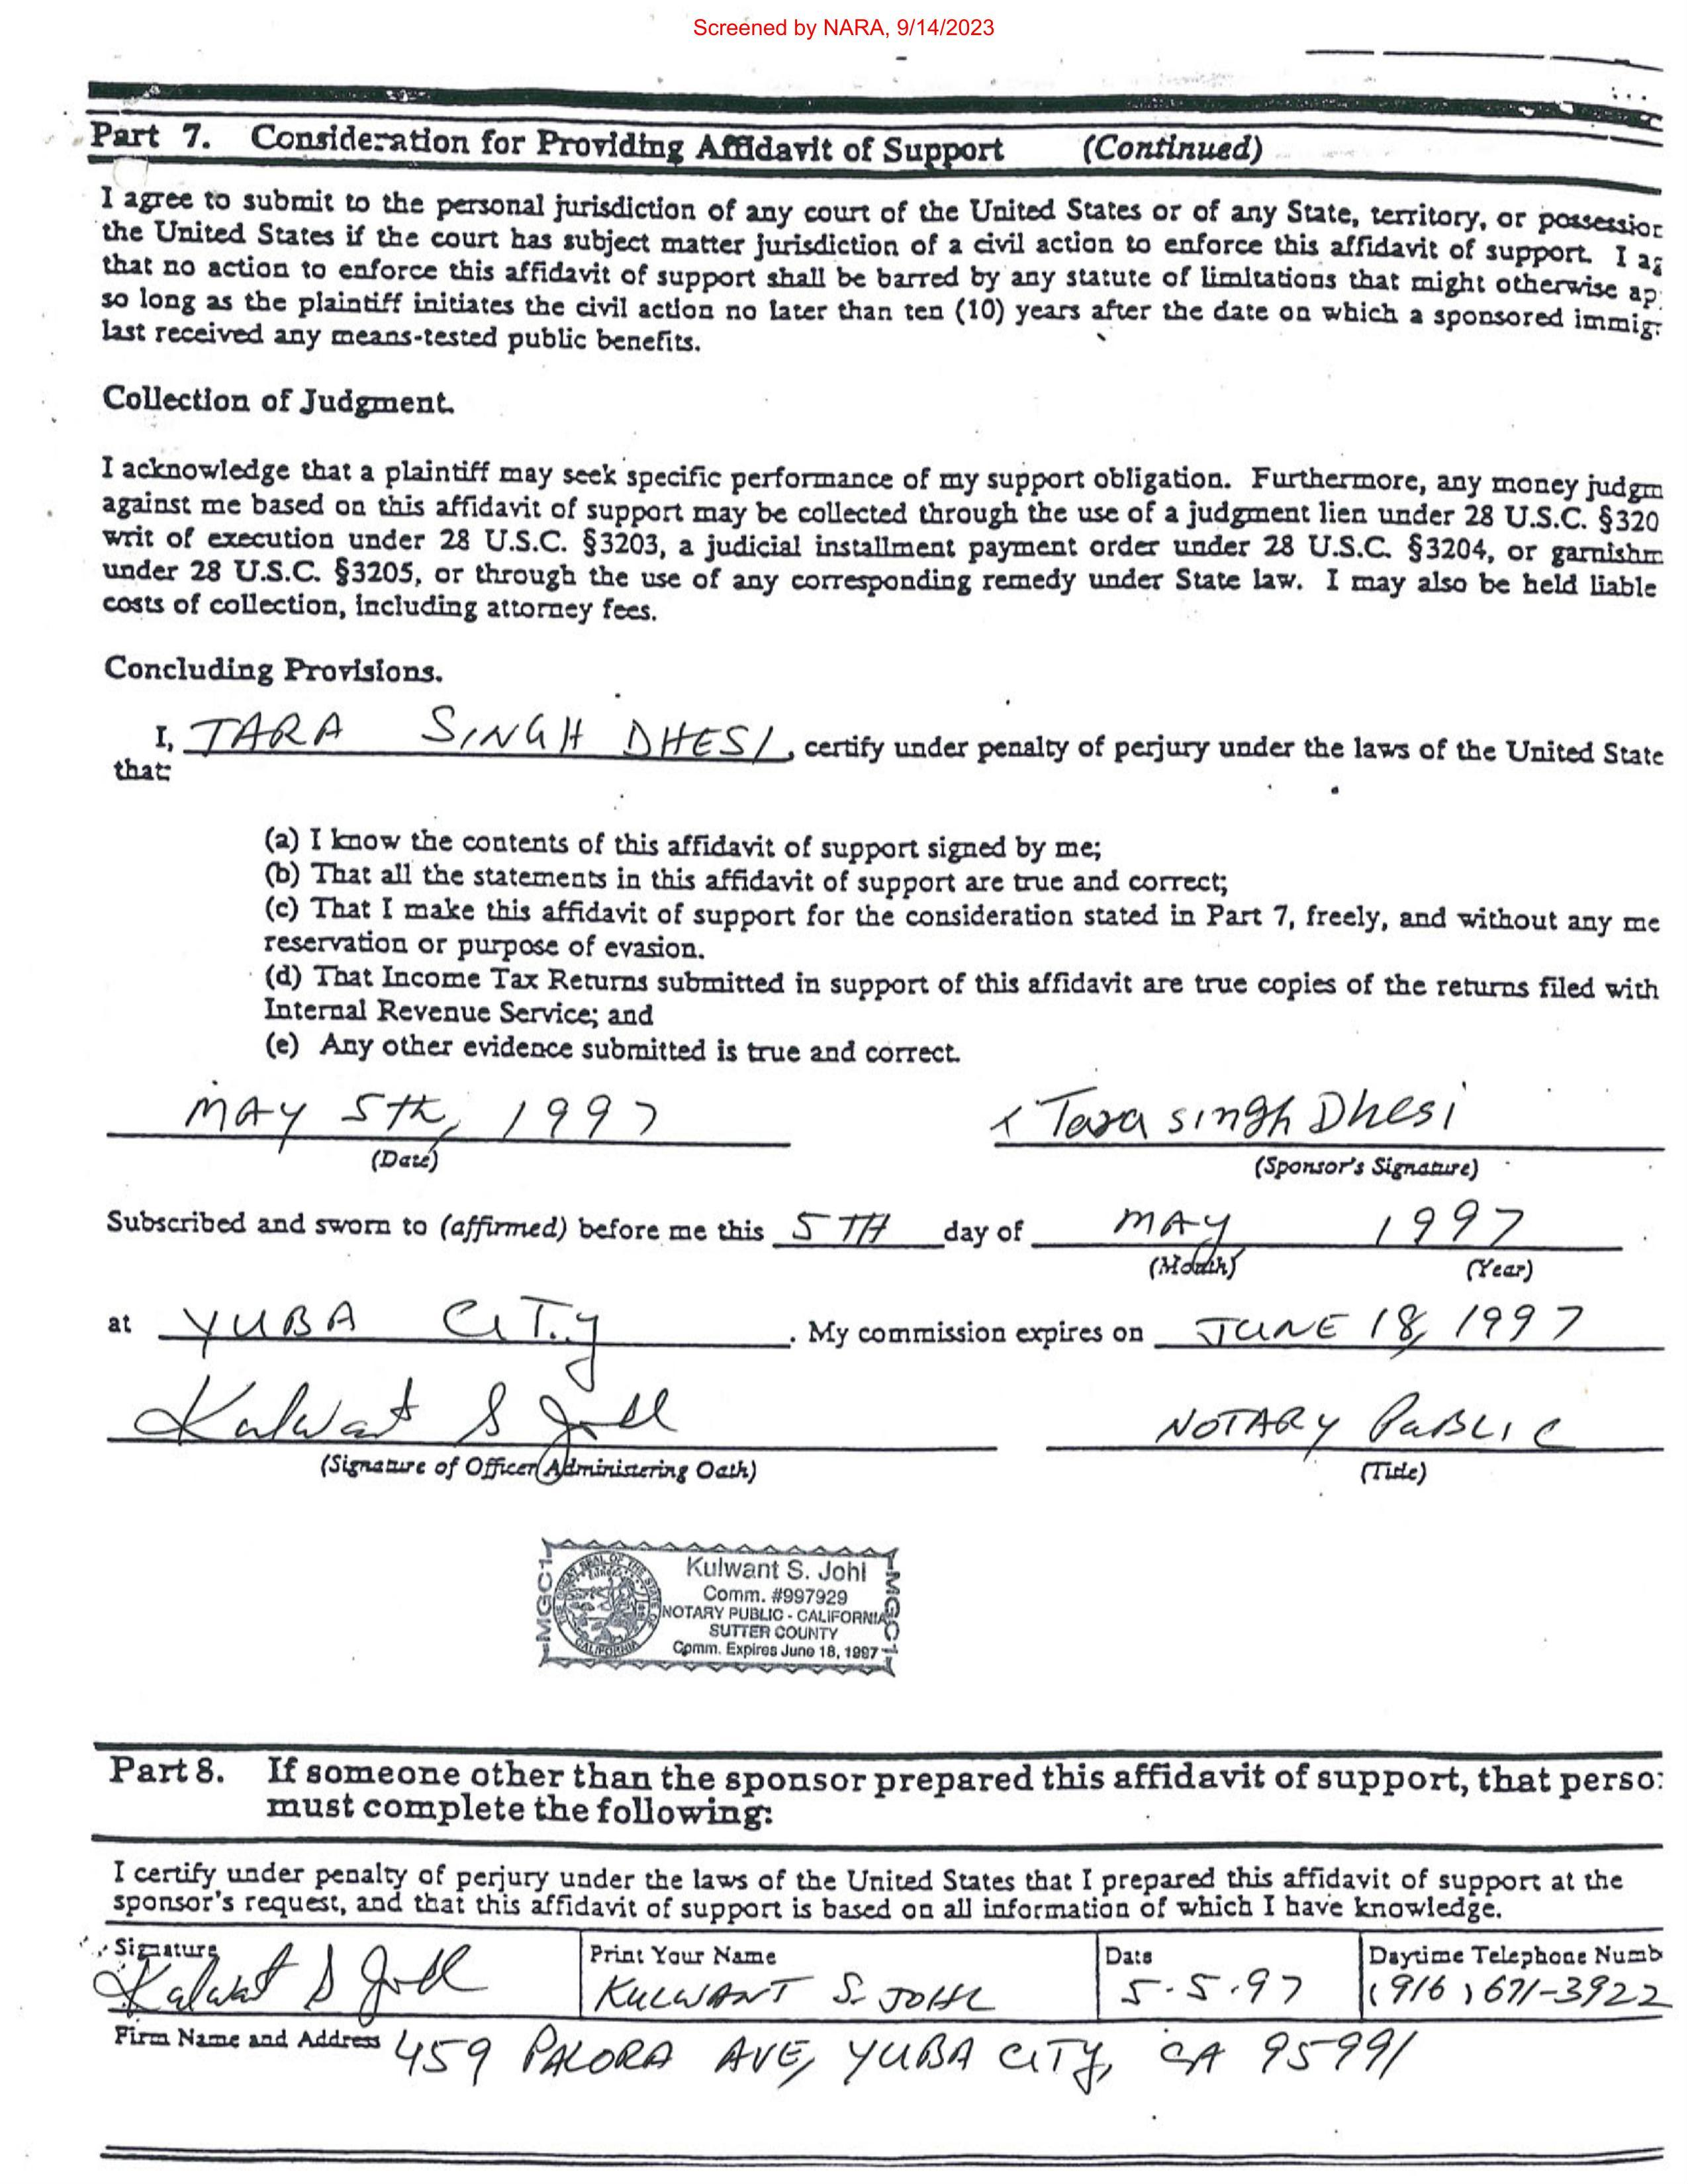 Screened by NARA, 9/14/2023
Part 7. Consideration for Providing Affidavit of Support (Continued)
I agree to submit to the personal jurisdiction of any court of the United States or of any State, territory, or possession
the United States if the court has subject matter jurisdiction of a civil action to enforce this affidavit of support. I ag
that no action to enforce this affidavit of support shall be barred by any statute of limitations that might otherwise ap
so long as the plaintiff initiates the civil action no later than ten (10) years after the date on which a sponsored immig
last received any means-tested public benefits.
Collection of Judgment.
I acknowledge that a plaintiff may seek specific performance of my support obligation. Furthermore, any money judgm
against me based on this affidavit of support may be collected through the use of a judgment lien under 28 U.S.C. §320
writ of execution under 28 U.S.C. §3203, a judicial installment payment order under 28 U.S.C. §3204, or garnishm
under 28 U.S.C. §3205, or through the use of any corresponding remedy under State law. I may also be held liable
costs of collection, including attorney fees.
Concluding Provisions.
I, TARA SINGH DHESI, certify under penalty of perjury under the laws of the United State
that:
(a) I know the contents of this affidavit of support signed by me;
(b) That all the statements in this affidavit of support are true and correct;
(c) That I make this affidavit of support for the consideration stated in Part 7, freely, and without any me
reservation or purpose of evasion.
(d) That Income Tax Returns submitted in support of this affidavit are true copies of the returns filed with
Internal Revenue Service; and
(e) Any other evidence submitted is true and correct.
MAY 5th, 1997 x Tara singh Dhesi
(Date) (Sponsor's Signature)
Subscribed and sworn to (affirmed) before me this 5TH day of MAY 1997
(Month) (Year)
at YUBA CITY. My commission expires on JUNE 18, 1997
Kulwant S Johl NOTARY PUBLIC
(Signature of Officer Administering Oath) (Title)
MGC1 MGC1
THE GREAT SEAL OF THE STATE OF CALIFORNIA
Kulwant S. Johl
Comm. #997929
NOTARY PUBLIC - CALIFORNIA
SUTTER COUNTY
Comm. Expires June 18, 1997
Part 8. If someone other than the sponsor prepared this affidavit of support, that person
must complete the following:
I certify under penalty of perjury under the laws of the United States that I prepared this affidavit of support at the
sponsor's request, and that this affidavit of support is based on all information of which I have knowledge.
Signature Print Your Name Date Daytime Telephone Numb
Kulwant S Johl KULWANT S. JOHL 5.5.97 (916) 671-3922
Firm Name and Address 459 PALORA AVE, YUBA CITY, CA 95991